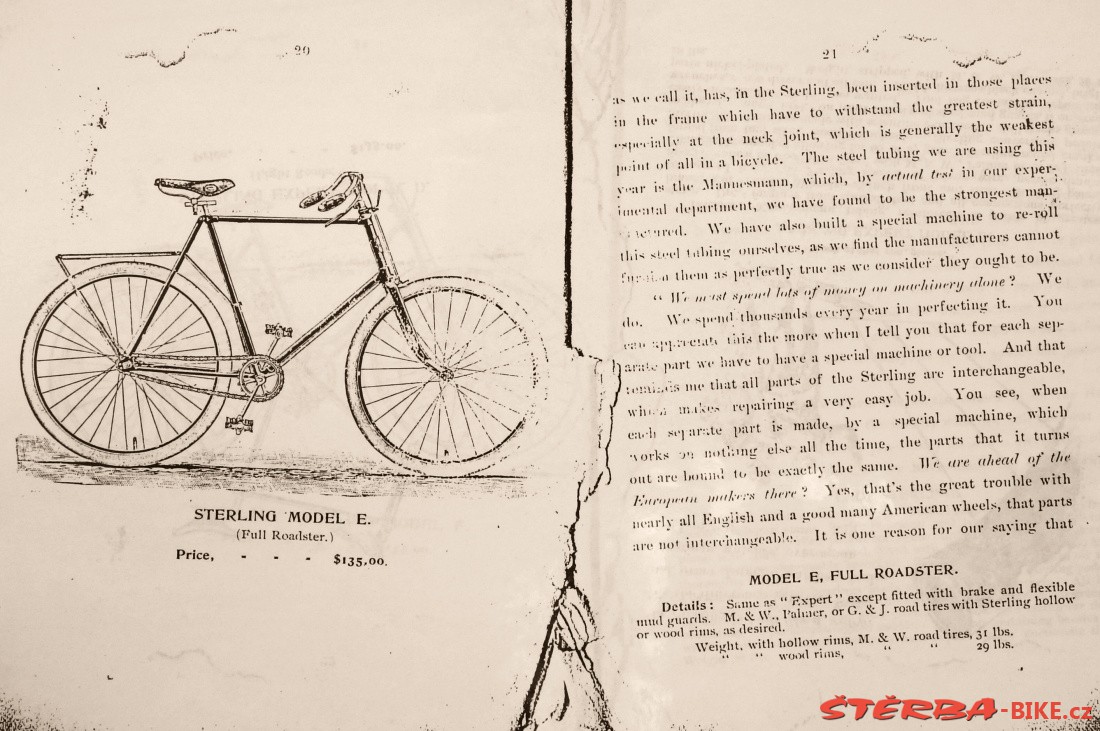 20
STERLING MODEL E.
(Full Roadster.)
Price, - - - $135.00.
21
as we call it, has, in the Sterling, been inserted in those places
in the frame which have to withstand the greatest strain,
especially at the neck joint, which is generally the weakest
point of all in a bicycle. The steel tubing we are using this
year is the Mannesmann, which, by actual test in our exper-
imental department, we have found to be the strongest man-
We have also built a special machine to re-roll
this steel tubing ourselves, as we find the manufacturers cannot
furnish them as perfectly true as we consider they ought to be.
" We must spend lots of money on machinery alone? We
do. We spend thousands every year in perfecting it. You
can appreciate this the more when I tell you that for each sep-
arate part we have to have a special machine or tool. And that
reminds me that all parts of the Sterling are interchangeable,
which makes repairing a very easy job. You see, when
each separate part is made, by a special machine, which
works on nothing else all the time, the parts that it turns
out are bound to be exactly the same. We are ahead of the
European makers there? Yes, that's the great trouble with
nearly all English and a good many American wheels, that parts
are not interchangeable. It is one reason for our saying that
MODEL E, FULL ROADSTER.
Details: Same as "Expert" except fitted with brake and flexible
mud guards. M. & W., Palmer, or G. & J. road tires with Sterling hollow
or wood rims, as desired.
Weight, with hollow rims, M. & W. road tires, 31 lbs.
" " wood rims, " " 29 lbs.
ŠTĚRBA-BIKE.cz